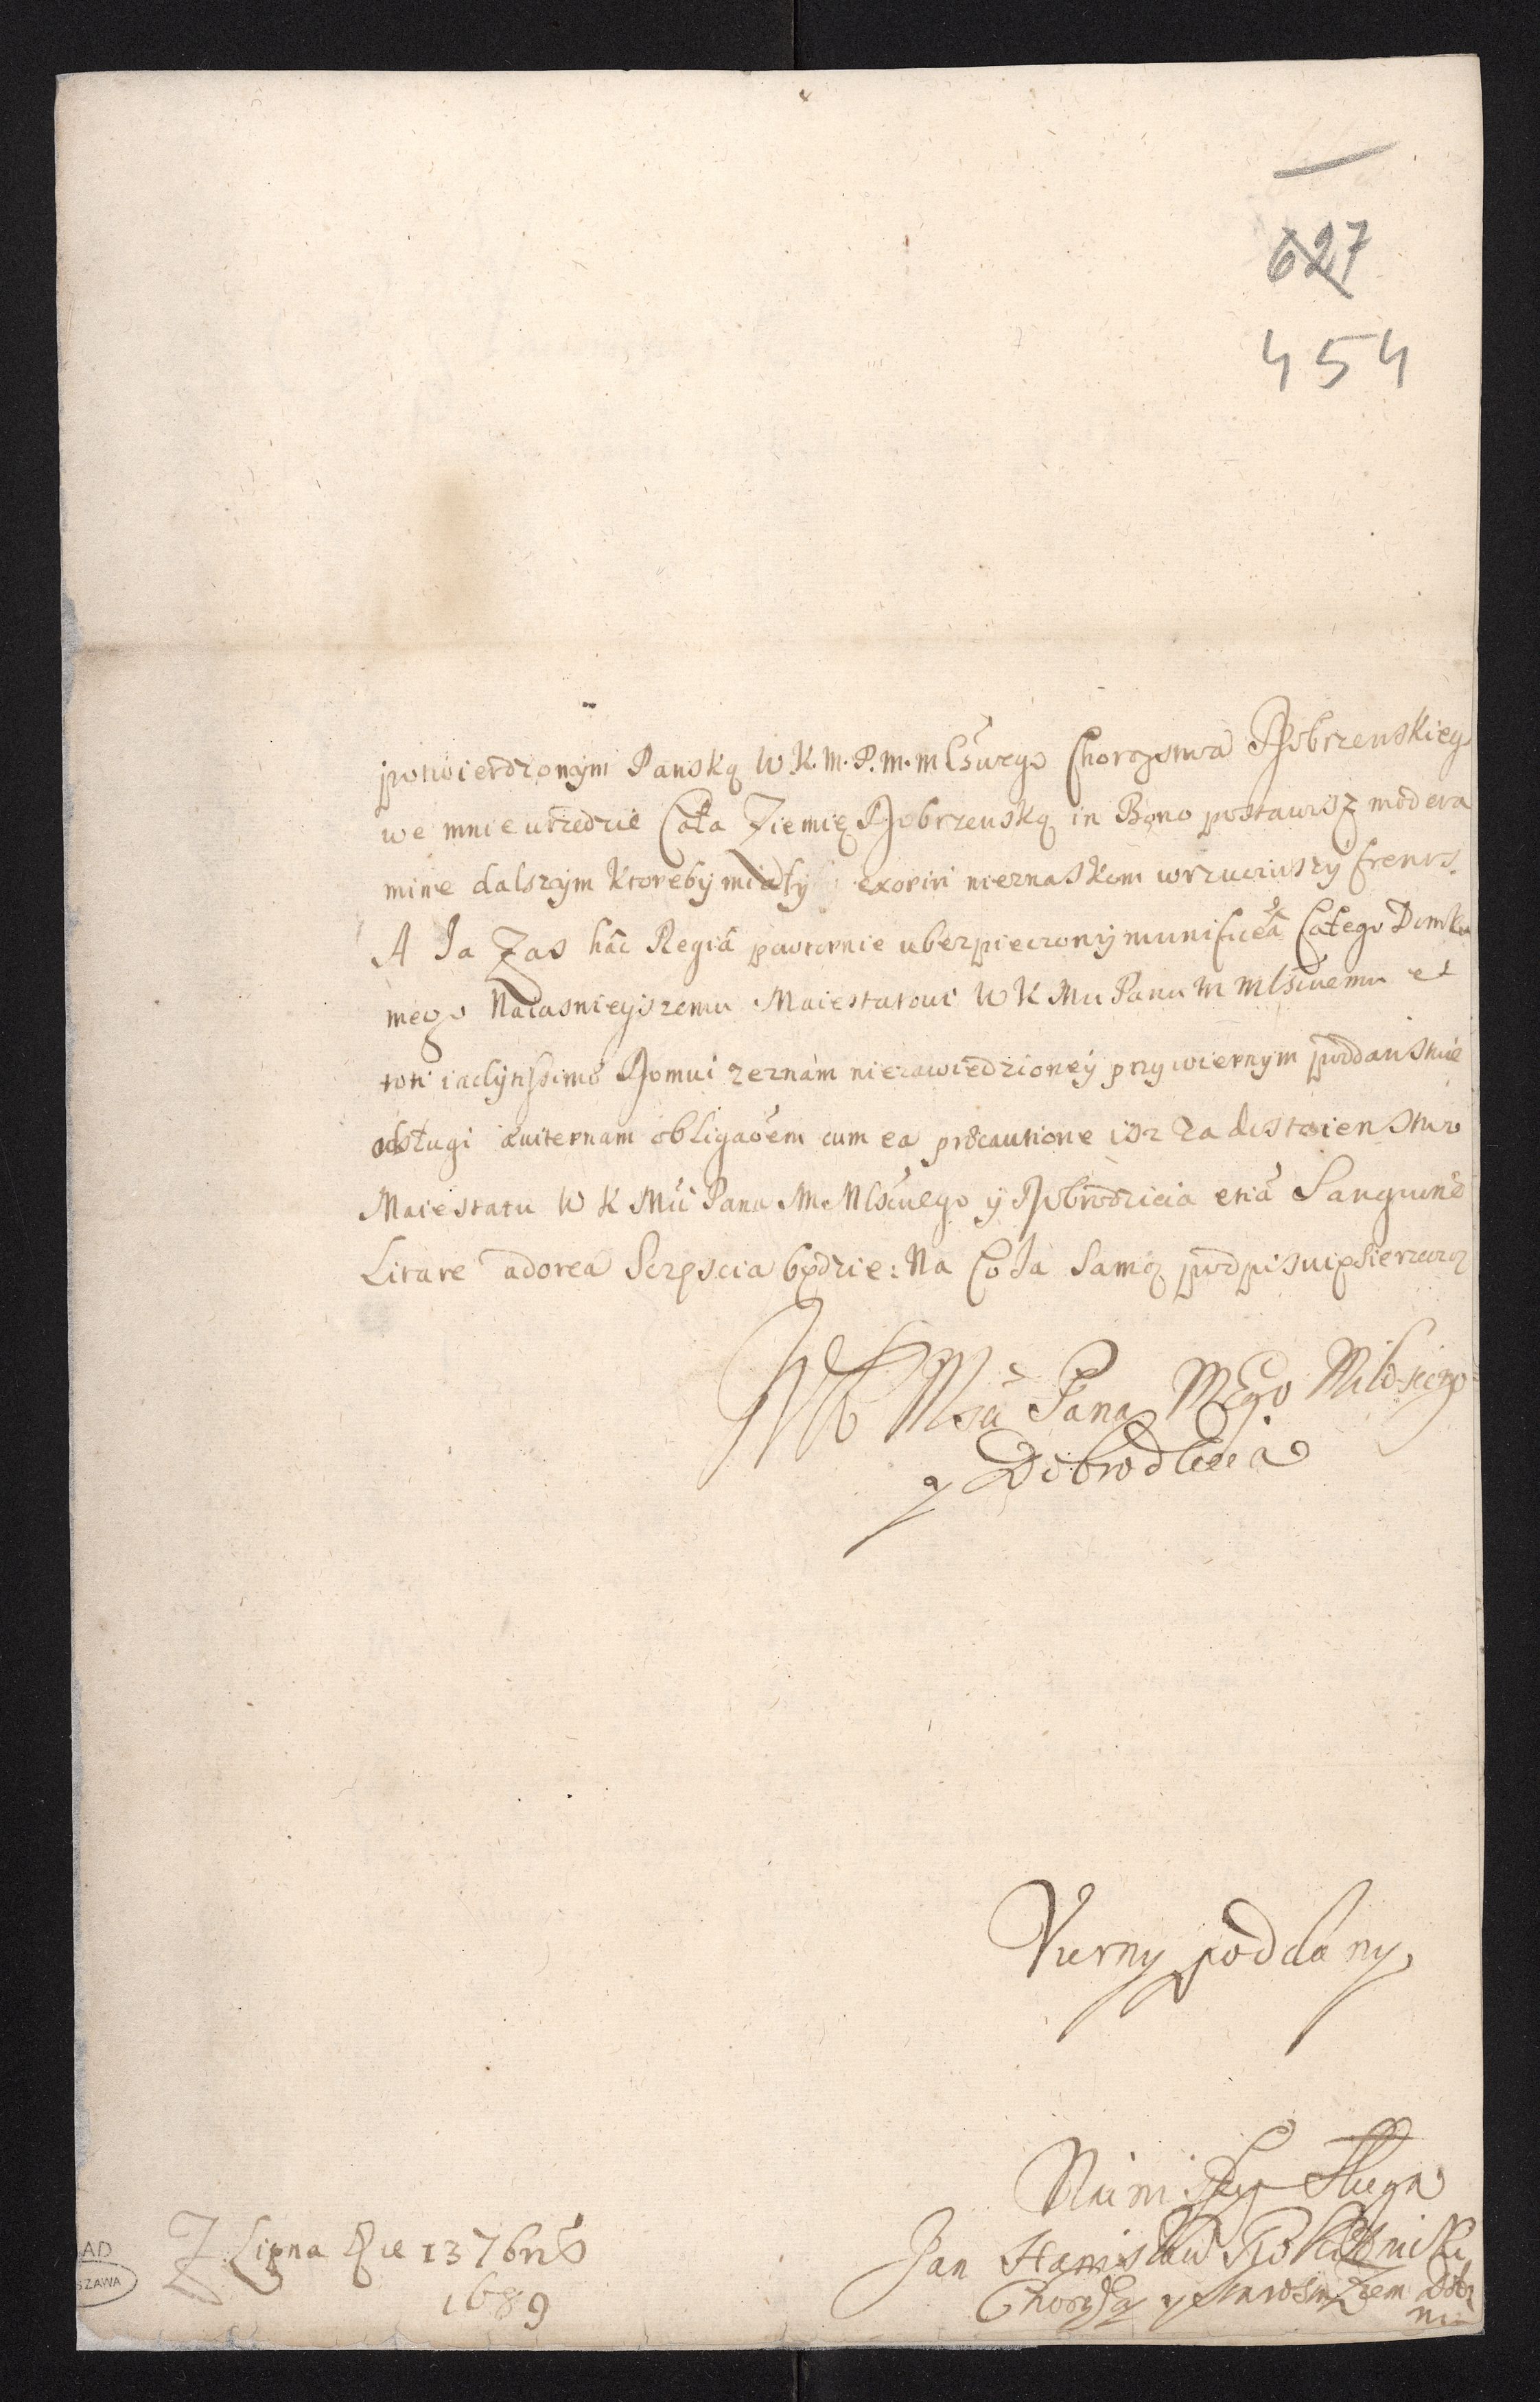 627
454
potwierdzonym Pańską W K. M. P. m. mlścwego Chorąstwa Dobrzenskieg
we mnie urzędzie Cała Ziemię Dobrzenską in Bono postawisz modera
mine dalszym ktoreby miały exoriri nieznaskom wrzuciwszy frenos.
A Ja Zas hâc Regiâ powtornie ubezpieczony munificêa Całego Domku
mego Naiasnieyszemu Maiestatowi W K Mu Panu M Mlscivemu et
toti inclytissimo Domui zeznam niezawiedzioney przy wiernym poddanstwie
odsługi æviternam obligaõem cum ea præcautione isz Za dostoienstwo
Maiestatu W K Mci Pana M. Mlscivego y Dobrodzieia etiã Sanguine
Litare adorea Szczęscia będzie: Na Co Ja Samą podpisuię się ręką
W K Msci Pana Mego Milosciego
y Dobrodzieia
Vierny poddany
Nainiszy Sługa
Jan Stanisław
Chorąży y Starosta Ziem Dobrz
Z Lipna Die 13 7bris
1689
AD
SZAWA